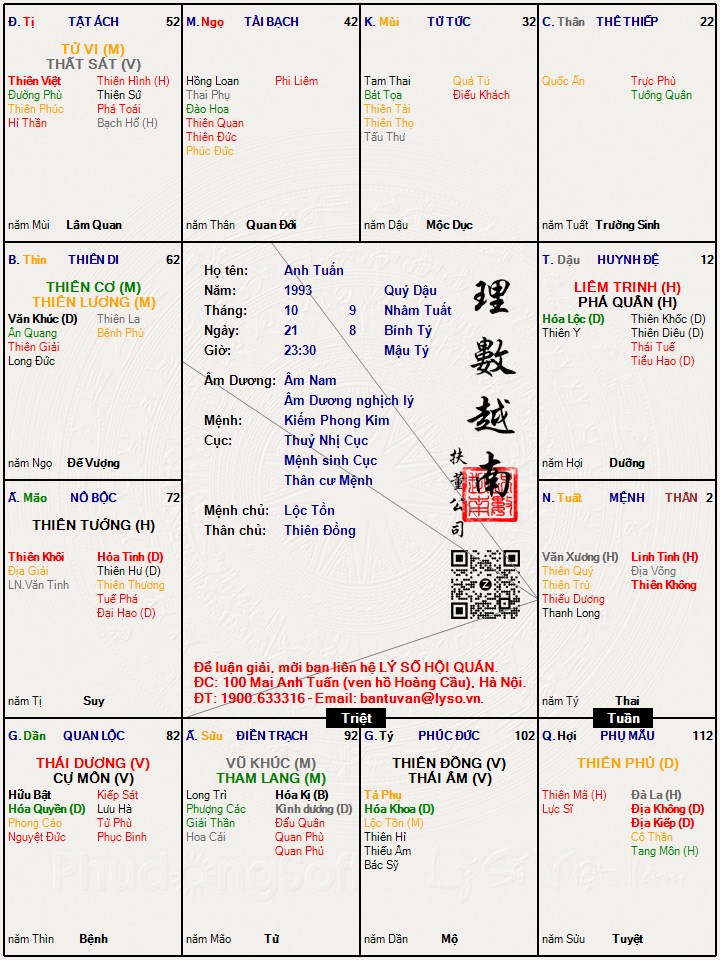 Đ. Tị TẬT ÁCH 52
TỬ VI (M)
THẤT SÁT (V)
Thiên Việt Thiên Hình (H)
Đường Phù Thiên Sứ
Thiên Phúc Phá Toái
Hỉ Thần Bạch Hổ (H)
năm Mùi Lâm Quan
M. Ngọ TÀI BẠCH 42
Hồng Loan Phi Liêm
Thai Phụ
Đào Hoa
Thiên Quan
Thiên Đức
Phúc Đức
năm Thân Quan Đới
K. Mùi TỬ TỨC 32
Tam Thai Quả Tú
Bát Tọa Điếu Khách
Thiên Tài
Thiên Thọ
Tấu Thư
năm Dậu Mộc Dục
C. Thân THÊ THIẾP 22
Quốc Ấn Trực Phù
Tướng Quân
năm Tuất Trường Sinh
B. Thìn THIÊN DI 62
THIÊN CƠ (M)
THIÊN LƯƠNG (M)
Văn Khúc (D) Thiên La
Ân Quang Bệnh Phù
Thiên Giải
Long Đức
năm Ngọ Đế Vượng
Họ tên: Anh Tuấn
Năm: 1993 Quý Dậu
Tháng: 10 9 Nhâm Tuất
Ngày: 21 8 Bính Tý
Giờ: 23:30 Mậu Tý
Âm Dương: Âm Nam
Âm Dương nghịch lý
Mệnh: Kiếm Phong Kim
Cục: Thuỷ Nhị Cục
Mệnh sinh Cục
Thân cư Mệnh
Mệnh chủ: Lộc Tồn
Thân chủ: Thiên Đồng
理數越南
扶董公司
Để luận giải, mời bạn liên hệ LÝ SỐ HỘI QUÁN.
ĐC: 100 Mai Anh Tuấn (ven hồ Hoàng Cầu), Hà Nội.
ĐT: 1900.633316 - Email: bantuvan@lyso.vn.
T. Dậu HUYNH ĐỆ 12
LIÊM TRINH (H)
PHÁ QUÂN (H)
Hóa Lộc (D) Thiên Khốc (D)
Thiên Y Thiên Diêu (D)
Thái Tuế
Tiểu Hao (D)
năm Hợi Dưỡng
Ấ. Mão NÔ BỘC 72
THIÊN TƯỚNG (H)
Thiên Khôi Hỏa Tinh (D)
Địa Giải Thiên Hư (D)
LN.Văn Tinh Thiên Thương
Tuế Phá
Đại Hao (D)
năm Tị Suy
N. Tuất MỆNH THÂN 2
Văn Xương (H) Linh Tinh (H)
Thiên Quý Địa Võng
Thiên Trù Thiên Không
Thiếu Dương
Thanh Long
năm Tý Thai
Triệt
Tuần
G. Dần QUAN LỘC 82
THÁI DƯƠNG (V)
CỰ MÔN (V)
Hữu Bật Kiếp Sát
Hóa Quyền (D) Lưu Hà
Phong Cáo Tử Phù
Nguyệt Đức Phục Binh
năm Thìn Bệnh
Ấ. Sửu ĐIỀN TRẠCH 92
VŨ KHÚC (M)
THAM LANG (M)
Long Trì Hóa Kị (B)
Phượng Các Kình dương (D)
Giải Thần Đẩu Quân
Hoa Cái Quan Phù
Quan Phủ
năm Mão Tử
G. Tý PHÚC ĐỨC 102
THIÊN ĐỒNG (V)
THÁI ÂM (V)
Tả Phụ
Hóa Khoa (D)
Lộc Tồn (M)
Thiên Hỉ
Thiếu Âm
Bác Sỹ
năm Dần Mộ
Q. Hợi PHỤ MẪU 112
THIÊN PHỦ (D)
Thiên Mã (H) Đà La (H)
Lực Sĩ Địa Không (D)
Địa Kiếp (D)
Cô Thần
Tang Môn (H)
năm Sửu Tuyệt